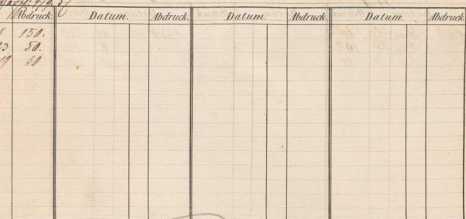 Abdruck. Datum. Abdruck. Datum. Abdruck. Datum. Abdruck.
150.
50.
50